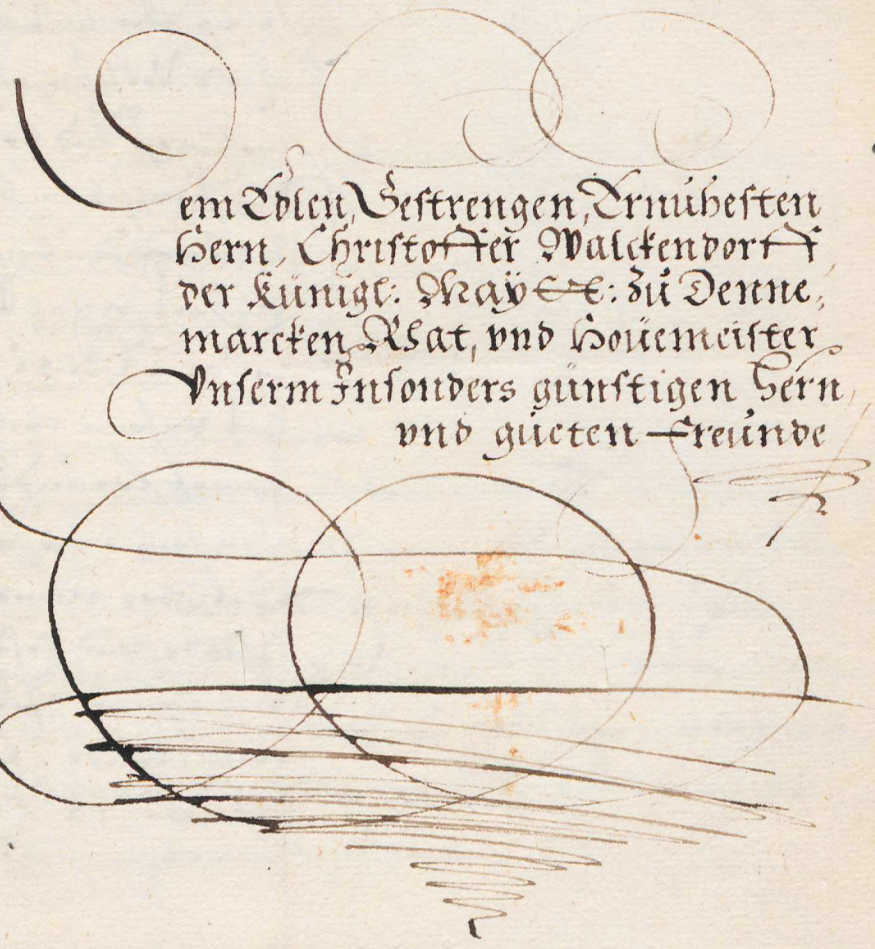 Dem Edlen, Gestrengen, Ernuhesten
Hern, Christoffer Walckendorff
der Künigl: May ett: zu Denne,
marcken Rhat, vnd Houemeister
Vnserm Insonders günstigen Hern,
vnd gueten Freunde